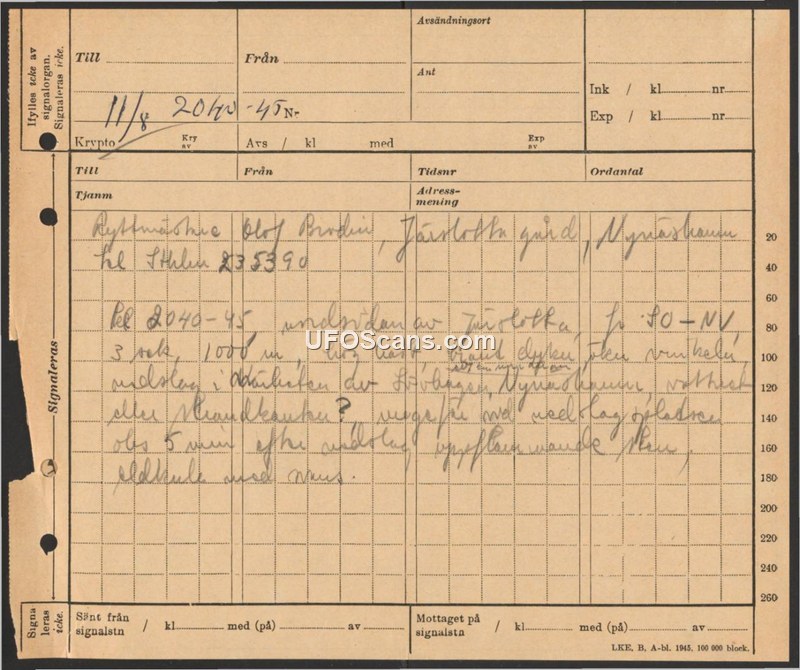 Ifylles icke av signalorgan. Signaleras icke.
Till
Från
Avsändningsort
Ant
Ink / kl nr
Exp / kl nr
11/8 2040-45 Nr
Krypto Kry av
Avs / kl med Exp av
Till Från Tidsnr Ordantal
Tjanm Adress-mening
Signaleras
Ryttmästare Olof Brodin, Järflotta gård, Nynäshamn 20
tel Sthlm 235390 40
60
Kl 2040-45, nordsidan av Järflotta, fr SO-NV, 80
3 sek, 1000 m, hög hast, brant dykn, vinkeln, 100
nedslag i närheten av Lövhagen, Nynäshamn, 120
eller strandkanten?, ungefär vid nedslagsplatsen 140
obs 5 min efter nedslag, uppflammande sken, 160
eldkula med svans. 180
200
220
240
260
UFOScans.com
Signaleras icke.
Sänt från signalstn / kl med (på) av
Mottaget på signalstn / kl med (på) av
LKE, B, A-bl. 1945, 100 000 block.